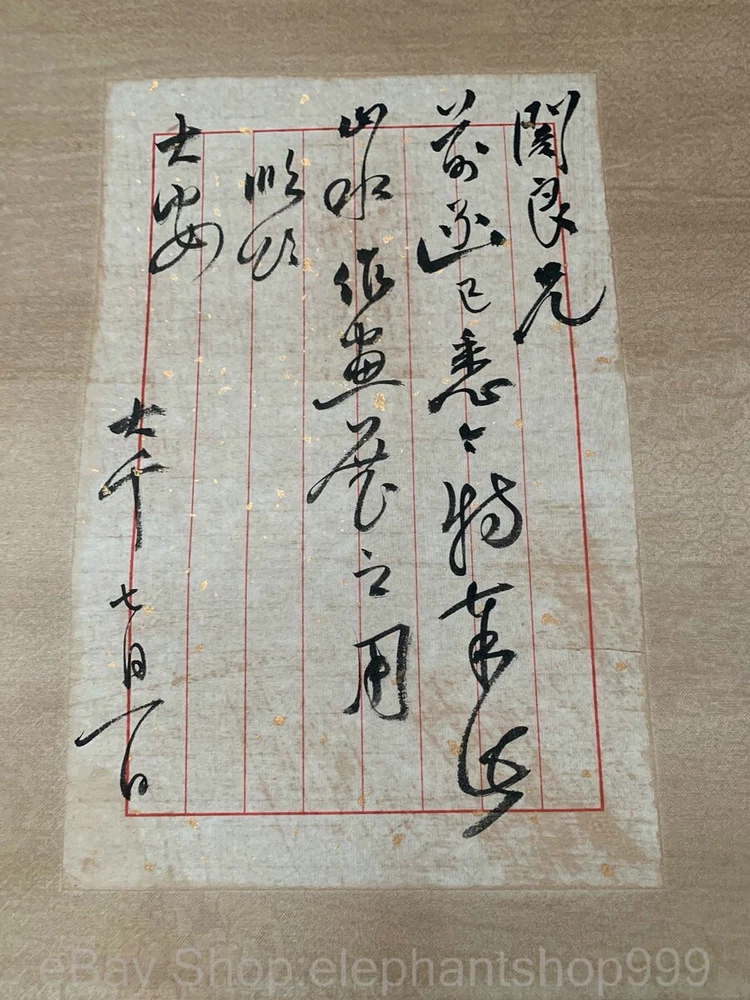 關良兄
前函已悉今特奉
山水作畫展之用
順頌
大安
大千 七月一日
eBay Shop:elephantshop999